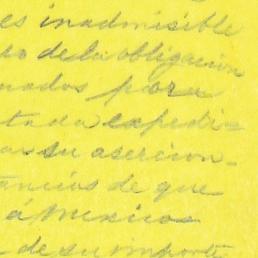 es inadmisible
do de la obligacion
nados para
tada expedi=
ar su asercion-
tancias de que
á Mexicos
de su importe